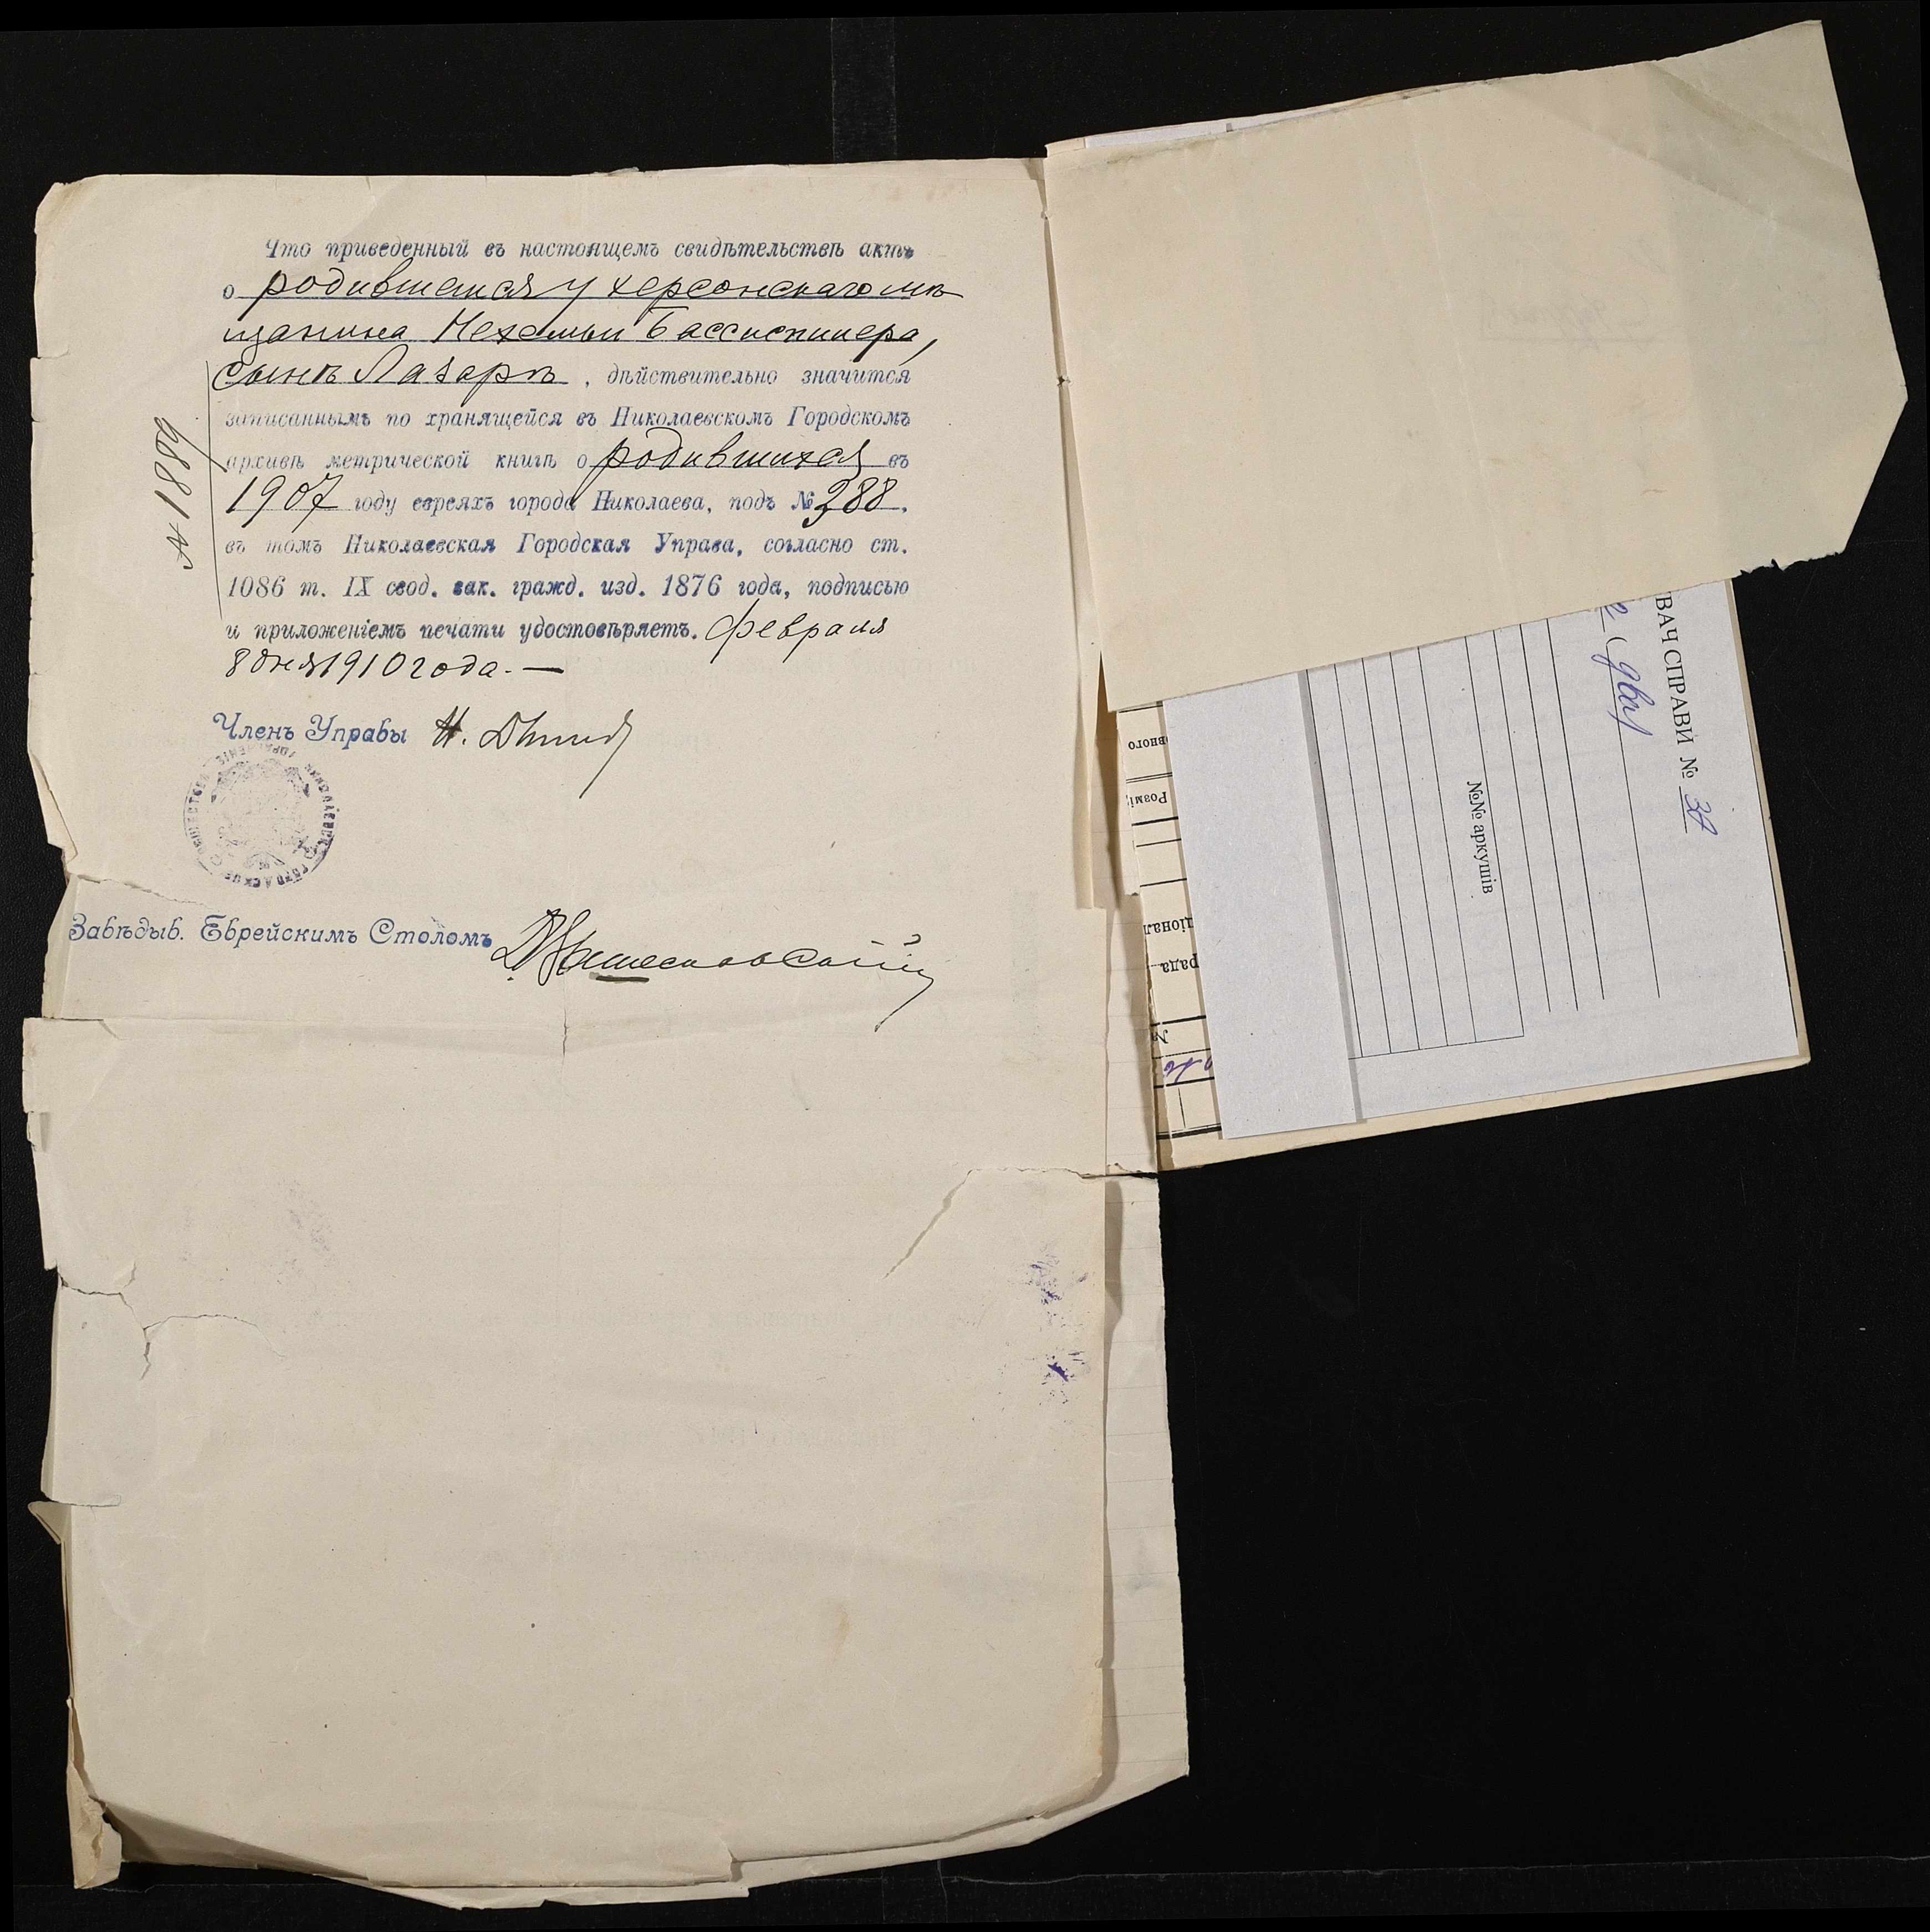 Что приведенный въ настоящемъ свидѣтельствѣ актъ
о родившемся у херсонскаго мѣ
щанина Нехемьи Бассиспинера,
сынѣ Лазарѣ, дѣйствительно значится
записаннымъ по хранящейся въ Николаевскомъ Городскомъ
архивѣ метрической книгѣ о родившихся въ
1907 году евреяхъ города Николаева, подъ № 288,
въ томъ Николаевская Городская Управа, согласно ст.
1086 т. IX свод. зак. гражд. изд. 1876 года, подписью
и приложеніемъ печати удостовѣряетъ. Февраля
8 дня 1910 года. —
№ 1889
Членъ Управы
Завѣдыв. Еврейскимъ Столомъ
ВАЧ СПРАВИ № 38
2 (два)
№№ аркушів
вного
Розмі
ціонал
рада
№